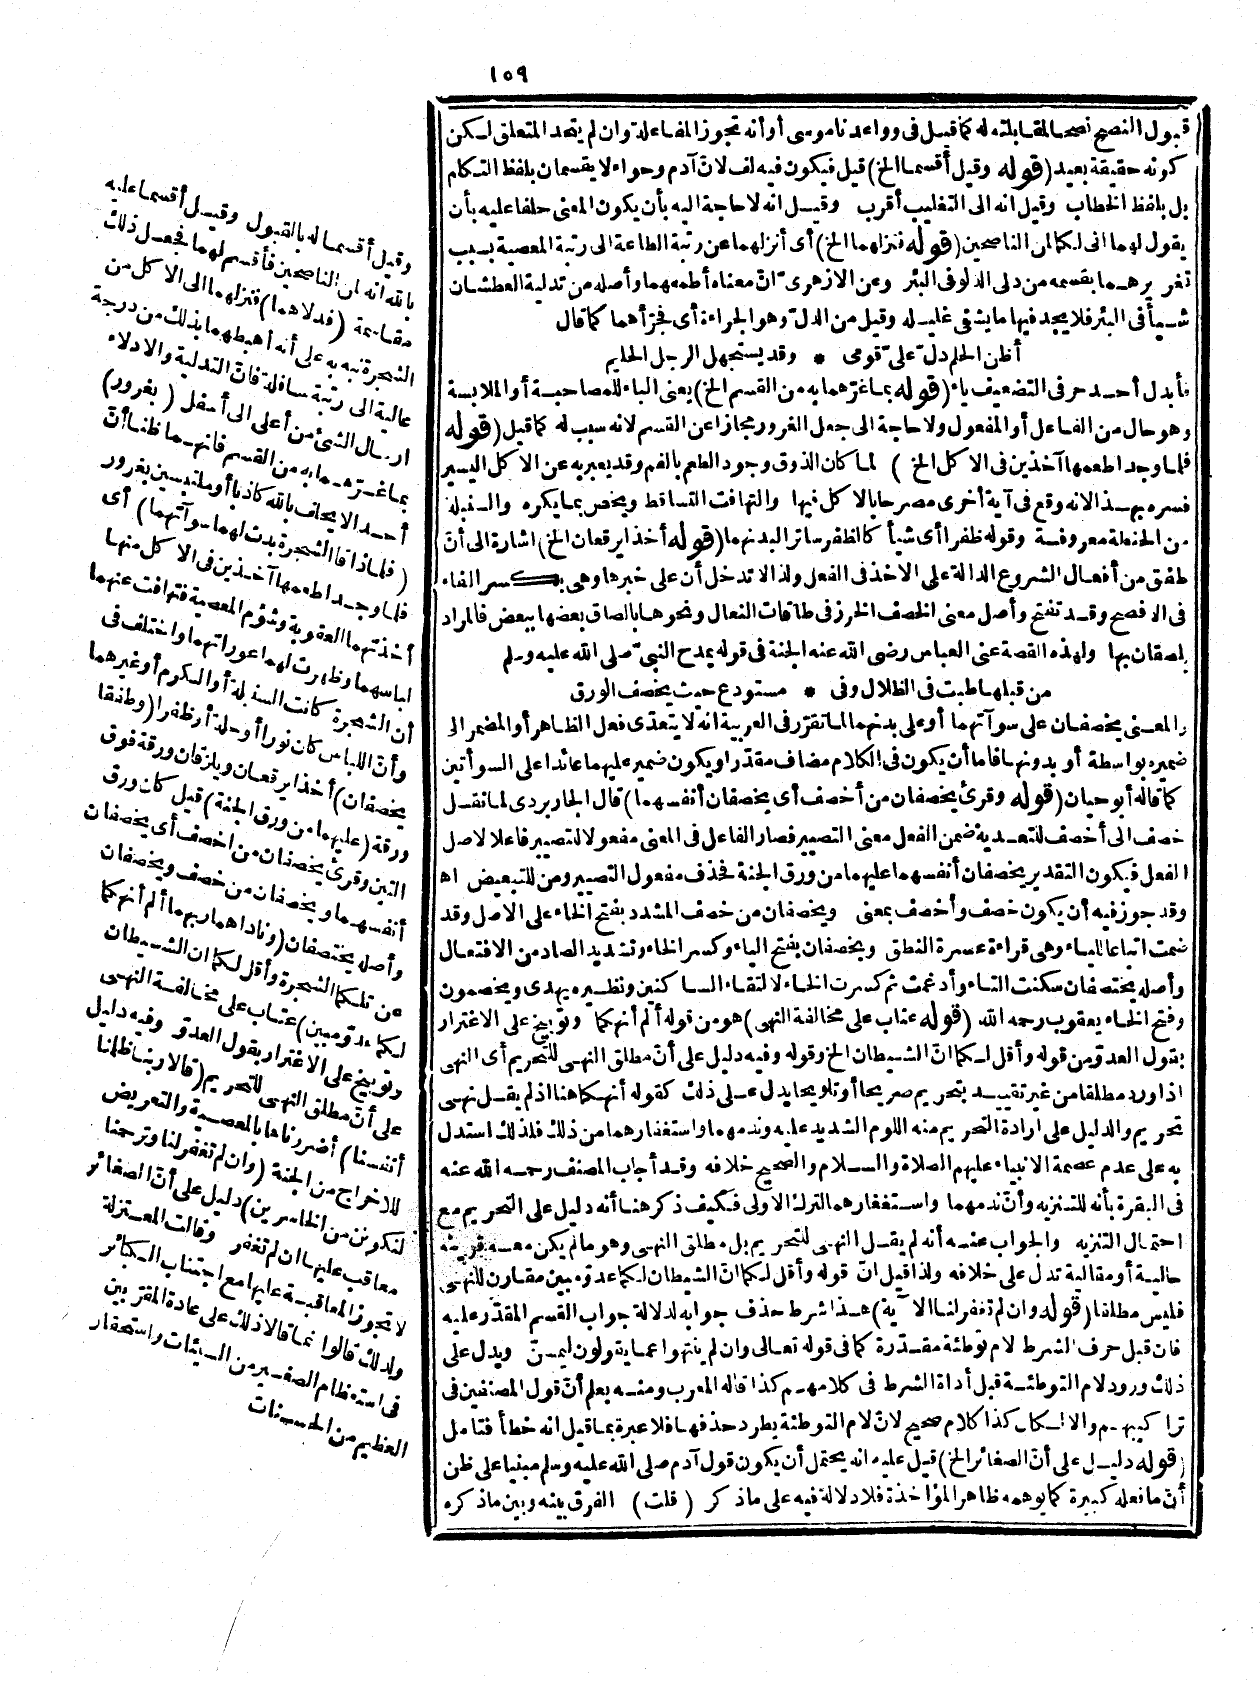 ١٥٩
قبول النصح نصحا لمقابلته له كما قيل فى وواعدنا موسى أو أنه تجوز المفاعلة وان لم يتحد المتعلق لكن
كونه حقيقة بعيد (قوله وقيل أقسما الخ) قيل فيكون فيه لف لانّ آدم وحواء لا يقسمان بلفظ التكلم
بل بلفظ الخطاب وقيل انه الى التغليب أقرب وقيل انه لا حاجة اليه بأن يكون المعنى حلفا عليه بأن
يقول لهما انى لكما لمن الناصحين (قوله فنزلهما الخ) أى أنزلهما عن رتبة الطاعة الى رتبة المعصية بسبب
تغريرهما بقسمه من دلى الدلو فى البئر وعن الازهرىّ انّ معناه أطمعهما وأصله من تدلية العطشان
شيأ فى البئر فلا يجد فيها ما يشفى غليله وقيل من الدلّ وهو الجراءة أى فجرّأهما كما قال
أظن الحلم دلّ علىّ قومى * وقد يستجهل الرجل الحليم
فأبدل أحد حرفى التضعيف ياء (قوله بما غرّهما به من القسم الخ) يعنى الباء للمصاحبة أو الملابسة
وهو حال من الفاعل أو المفعول ولا حاجة الى جعل الغرور مجازا عن القسم لانه سبب له كما قيل (قوله
فلما وجدا طعمها آخذين فى الاكل الخ) لما كان الذوق وجود الطعم بالفم وقد يعبر به عن الاكل اليسير
فسره بهذا لانه وقع فى آية أخرى مصرحا بالاكل فيها والتهافت التساقط ويخص بما يكره والسنبلة
من الحنطة معروفة وقوله ظفرا أى شيأ كالظفر ساتر البدنهما (قوله أخذا يرقعان الخ) اشارة الى أنّ
طفق من أفعال الشروع الدالة على الاخذ فى الفعل ولذا لا تدخل أن على خبرها وهى بكسر الفاء
فى الافصح وقد تفتح وأصل معنى الخصف الخرز فى طاقات النعال ونحوها بالصاق بعضها ببعض فالمراد
يلصقان بها ولهذه القصة عنى العباس رضى الله عنه الجنة فى قوله يمدح النبىّ صلى الله عليه وسلم
من قبلها طبت فى الظلال وفى * مستودع حيث يخصف الورق
والمعنى يخصفان على سوآتهما أو على بدنهما لما تقرّر فى العربية انه لا يتعدّى فعل الظاهر أو المضمر الى
ضميره بواسطة أو بدونها فاما أن يكون فى الكلام مضاف مقدّر أو يكون ضمير عليهما عائدا على السوأتين
كما قاله أبو حيان (قوله وقرئ يخصفان من أخصف أى يخصفان أنفسهما) قال الجاربردى لما نقل
خصف الى أخصف للتعدية ضمن الفعل معنى التصيير فصار الفاعل فى المعنى مفعولا للتصيير فاعلا لاصل
الفعل فيكون التقدير يخصفان أنفسهما عليهما من ورق الجنة فحذف مفعول التصيير ومن للتبعيض اه
وقد جوز فيه أن يكون خصف وأخصف بمعنى ويخصفان من خصف المشدد بفتح الخاء على الاصل وقد
ضمت اتباعا للياء وهى قراءة عسرة النطق ويخصفان بفتح الياء وكسر الخاء وتشديد الصاد من الافتعال
وأصله يختصفان سكنت التاء وأدغمت ثم كسرت الخاء لالتقاء الساكنين ونظيره يهدى ويخصمون
وفتح الخاء يعقوب رحمه الله (قوله عتاب على مخالفة النهى) هو من قوله ألم أنهكما وتوبيخ على الاغترار
بقول العدوّ من قوله وأقل لكما انّ الشيطان الخ وقوله وفيه دليل على أنّ مطلق النهى للتحريم أى النهى
اذا ورد مطلقا من غير تقييد بتحريم صريحا أو تلويحا يدل على ذلك كقوله أنهكما هنا اذ لم يقل نهى
تحريم والدليل على ارادة التحريم منه اللوم الشديد عليه وندمهما واستغفارهما من ذلك فلذلك استدل
به على عدم عصمة الانبياء عليهم الصلاة والسلام والصحيح خلافه وقد أجاب المصنف رحمه الله عنه
فى البقرة بأنه للتنزيه وأنّ ندمهما واستغفارهما لترك الاولى فكيف ذكر هنا أنه دليل على التحريم مع
احتمال التنزيه والجواب عنه أنه لم يقل النهى للتحريم بل مطلق النهى وهو ما لم يكن معه قرينة
حالية أو مقالية تدل على خلافه ولذا قيل انّ قوله وأقل لكما انّ الشيطان لكما عدوّ مبين مقارن للنهى
فليس مطلقا (قوله وان لم تغفر لنا الآية) هذا شرط حذف جوابه لدلالة جواب القسم المقدّر عليه
فان قبل حرف الشرط لام توطئة مقدّرة كما فى قوله تعالى وان لم ينتهوا عما يقولون ليمسنّ ويدل على
ذلك ورود لام التوطئة قبل أداة الشرط فى كلامهم كذا قاله المعرب ومنه يعلم أنّ قول المصنفين فى
تراكيبهم والا لكان كذا كلام صحيح لانّ لام التوطئة يطرد حذفها فلا عبرة بما قيل انه خطأ فتأمل
(قوله دليل على أنّ الصغائر الخ) قيل عليه انه يحتمل أن يكون قول آدم صلى الله عليه وسلم مبنيا على ظن
أنّ ما فعله كبيرة كما يوهمه ظاهر المؤاخذة فلا دلالة فيه على ما ذكر (قلت) الفرق بينه وبين ما ذكره
وقيل أقسما له بالقبول وقيل أقسما عليه
بالله انه لمن الناصحين فأقسم لهما فجعل ذلك
مقاسمة (فدلاهما) فنزلهما الى الاكل من
الشجرة نبه به على أنه أهبطهما بذلك من درجة
عالية الى رتبة سافلة فانّ التدلية والادلاء
ارسال الشئ من أعلى الى أسفل (بغرور)
بما غرّهما به من القسم فانهما ظنا أنّ
أحدا لا يحلف بالله كاذبا أو ملتبسين بغرور
(فلما ذاقا الشجرة بدت لهما سوآتهما) أى
فلما وجدا طعمها آخذين فى الاكل منها
أخذتهما العقوبة وشؤم المعصية فتهافت عنهما
لباسهما وظهرت لهما عوراتهما واختلف فى
أن الشجرة كانت السنبلة أو الكرم أو غيرهما
وأنّ اللباس كان نورا أو حلة أو ظفرا (وطفقا
يخصفان) أخذا يرقعان ويلزقان ورقة فوق
ورقة (عليهما من ورق الجنة) قيل كان ورق
التين وقرئ يخصفان من اخصف أى يخصفان
أنفسهما ويخصفان من خصف ويخصفان
وأصله يختصفان (وناداهما ربهما ألم أنهكما
عن تلكما الشجرة وأقل لكما ان الشيطان
لكما عدو مبين) عتاب على مخالفة النهى
وتوبيخ على الاغترار بقول العدوّ وفيه دليل
على أنّ مطلق النهى للتحريم (قالا ربنا ظلمنا
أنفسنا) أضررناها بالمعصية والتعريض
للاخراج من الجنة (وان لم تغفر لنا وترحمنا
لنكونن من الخاسرين) دليل على أنّ الصغائر
معاقب عليها ان لم تغفر وقالت المعتزلة
لا تجوز المعاقبة عليها مع اجتناب الكبائر
ولذلك قالوا انما قالا ذلك على عادة المقرّبين
فى استعظام الصغير من السيئات واستحقار
العظيم من الحسنات